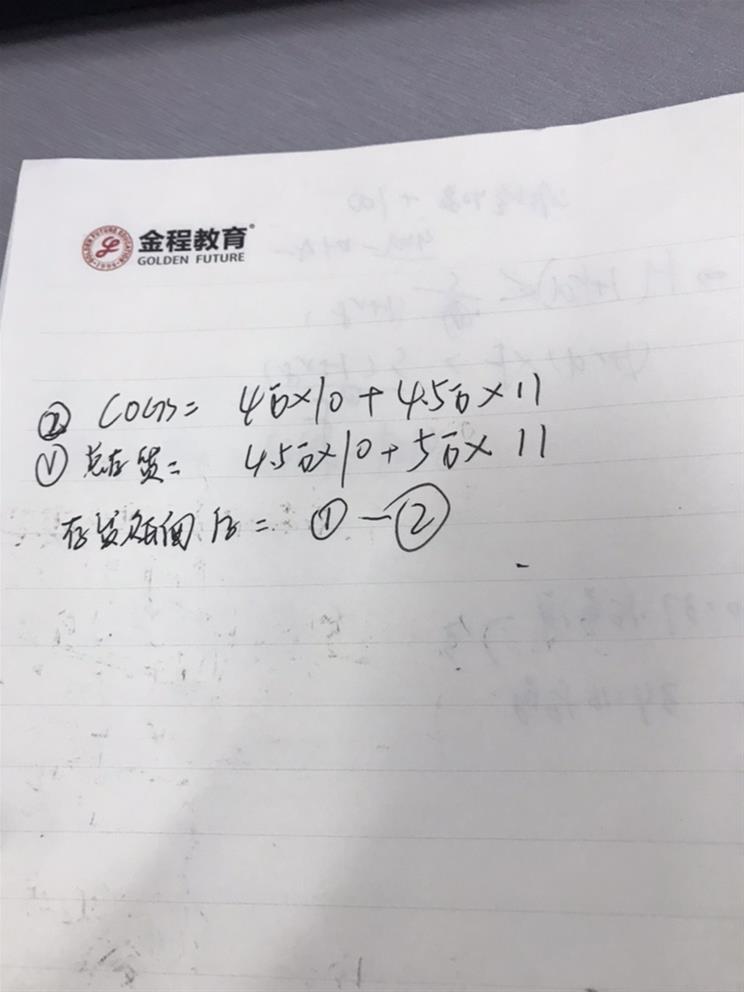 金程教育®
GOLDEN FUTURE
② COGS = 4百×10 + 4.5百×11
① 总存货 = 4.5百×10 + 5百×11
存货 = ① - ②